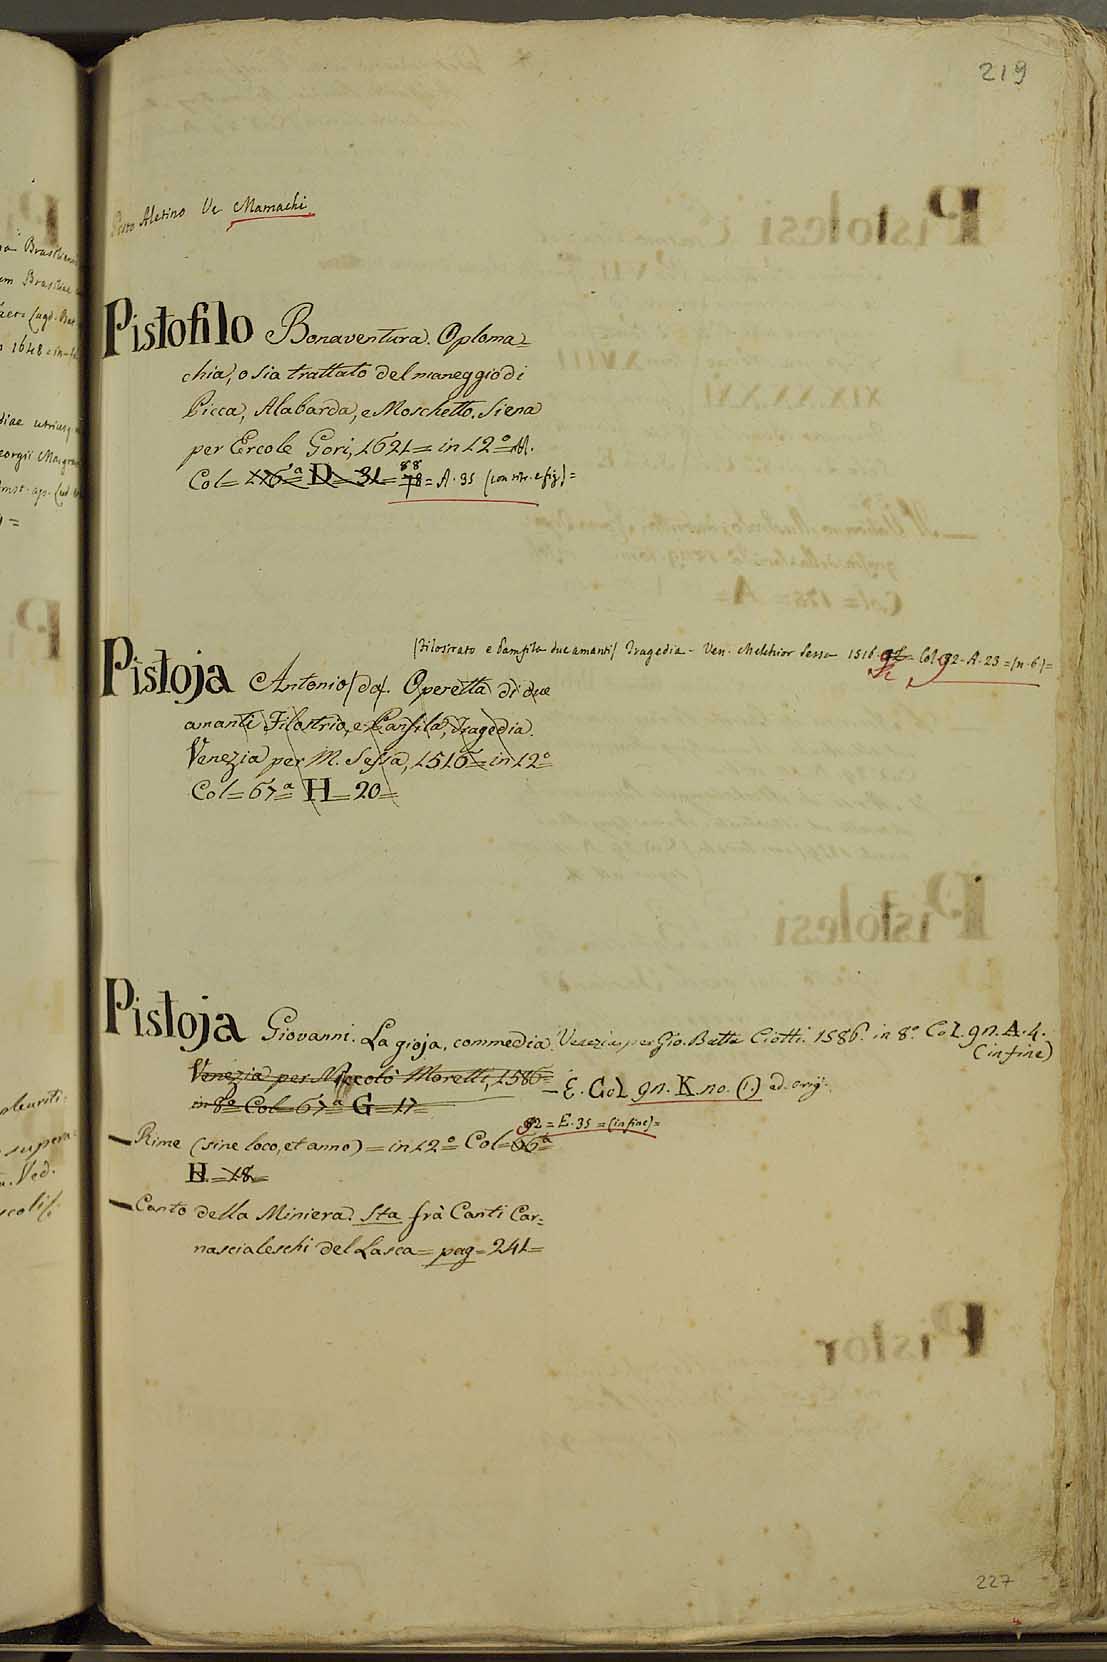 219
Pisto Aletino V. Mamachi
Pistofilo Bonaventura. Oploma=
chia, o sia trattato del maneggio di
Picca, Alabarda, e Moschetto. Siena
per Ercole Gori, 1621 = in 12º
Col = 126ª = D = 31 = 88 78 = A. 35 (con ritr. e fig.) =
(Filostrato e Pamfila due amanti) Tragedia - Ven. Melchior Sessa 1516. 8º Col. 92 - A - 23 = (n. 6) =
Pistoja Antonio (da). Operetta di due
amanti Filostrio, e Panfila, Tragedia.
Venezia per M. Sessa, 1516 = in 12º
Col = 67ª = H = 20 =
Pistoja Giovanni. La gioja, commedia. Venezia per Gio. Batta Ciotti. 1586. in 8º Col. 9n. A. 4.
(in fine)
Venezia per Niccolò Moretti, 1586 =
in 8º Col = 67ª G = 17 =
— E. Col. 9n. K. no. (1.) ed. orig.
92 = E. 35 = (in fine) =
— Rime (sine loco, et anno) = in 12º Col = 66ª
H. = 18 =
— Canto della Miniera. Sta frà Canti Car=
nascialeschi del Lasca = pag = 241 =
227